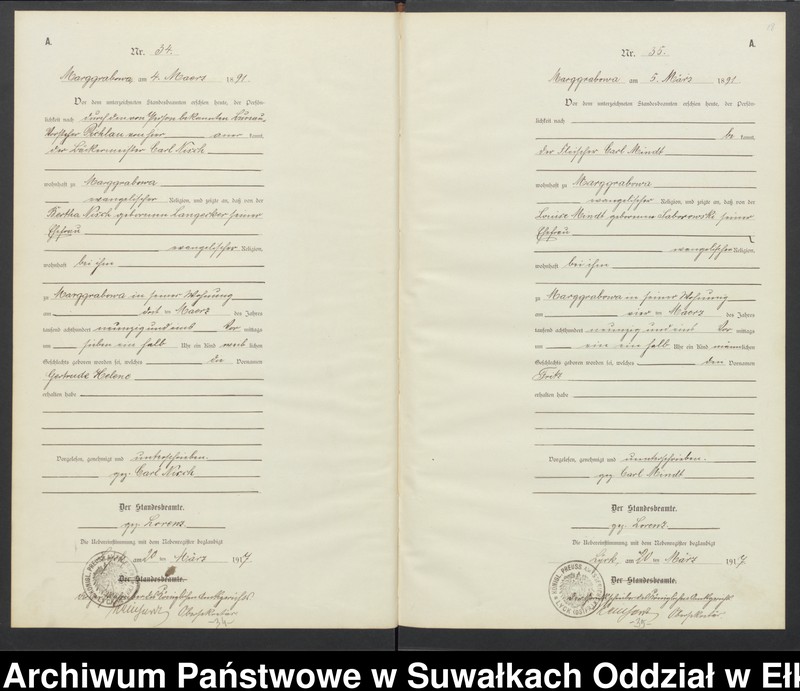 A.
Nr. 34.
Marggrabowa am 4. Maers 1891
Vor dem unterzeichneten Standesbeamten erschien heute, der Persön-
lichkeit nach durch den von Person bekannten Bureau-
Vorsteher von hier aner kannt,
der Bäckermeister Carl Nisch
wohnhaft zu Marggrabowa
evangelischer Religion, und zeigte an, daß von der
Bertha Nisch geborenen Langecker seiner
Ehefrau
evangelischer Religion,
wohnhaft bei ihm
zu Marggrabowa in seiner Wohnung
am drei ten Maers des Jahres
tausend achthundert neunzig und eins Vor mittags
um sieben ein halb Uhr ein Kind weib lichen
Geschlechts geboren worden sei, welches die Vornamen
Gertrude Helene
erhalten habe
Vorgelesen, genehmigt und unterschrieben.
gez. Carl Nisch
Der Standesbeamte.
gez. Lorenz
Die Uebereinstimmung mit dem Nebenregister beglaubigt
Lyck am 20 ten März 1917
Der Standesbeamte.
Der Gerichtsschreiber des Königlichen Amtsgerichts
Obersekretär
-34-
A.
Nr. 35.
Marggrabowa am 5. März 1891
Vor dem unterzeichneten Standesbeamten erschien heute, der Persön-
lichkeit nach
be kannt,
der Fleischer Carl Mindt
wohnhaft zu Marggrabowa
evangelischer Religion, und zeigte an, daß von der
Louise Mindt geborenen Saborowski seiner
Ehefrau
evangelischer Religion,
wohnhaft bei ihm
zu Marggrabowa in seiner Wohnung
am vier ten Maers des Jahres
tausend achthundert neunzig und eins Vor mittags
um ein ein halb Uhr ein Kind männlichen
Geschlechts geboren worden sei, welches den Vornamen
Fritz
erhalten habe
Vorgelesen, genehmigt und unterschrieben.
gez. Carl Mindt
Der Standesbeamte.
gez. Lorenz
Die Uebereinstimmung mit dem Nebenregister beglaubigt
Lyck am 20 ten März 1917
Der Standesbeamte.
Der Gerichtsschreiber des Königlichen Amtsgerichts
Obersekretär
-35-
Archiwum Państwowe w Suwałkach Oddział w Eł